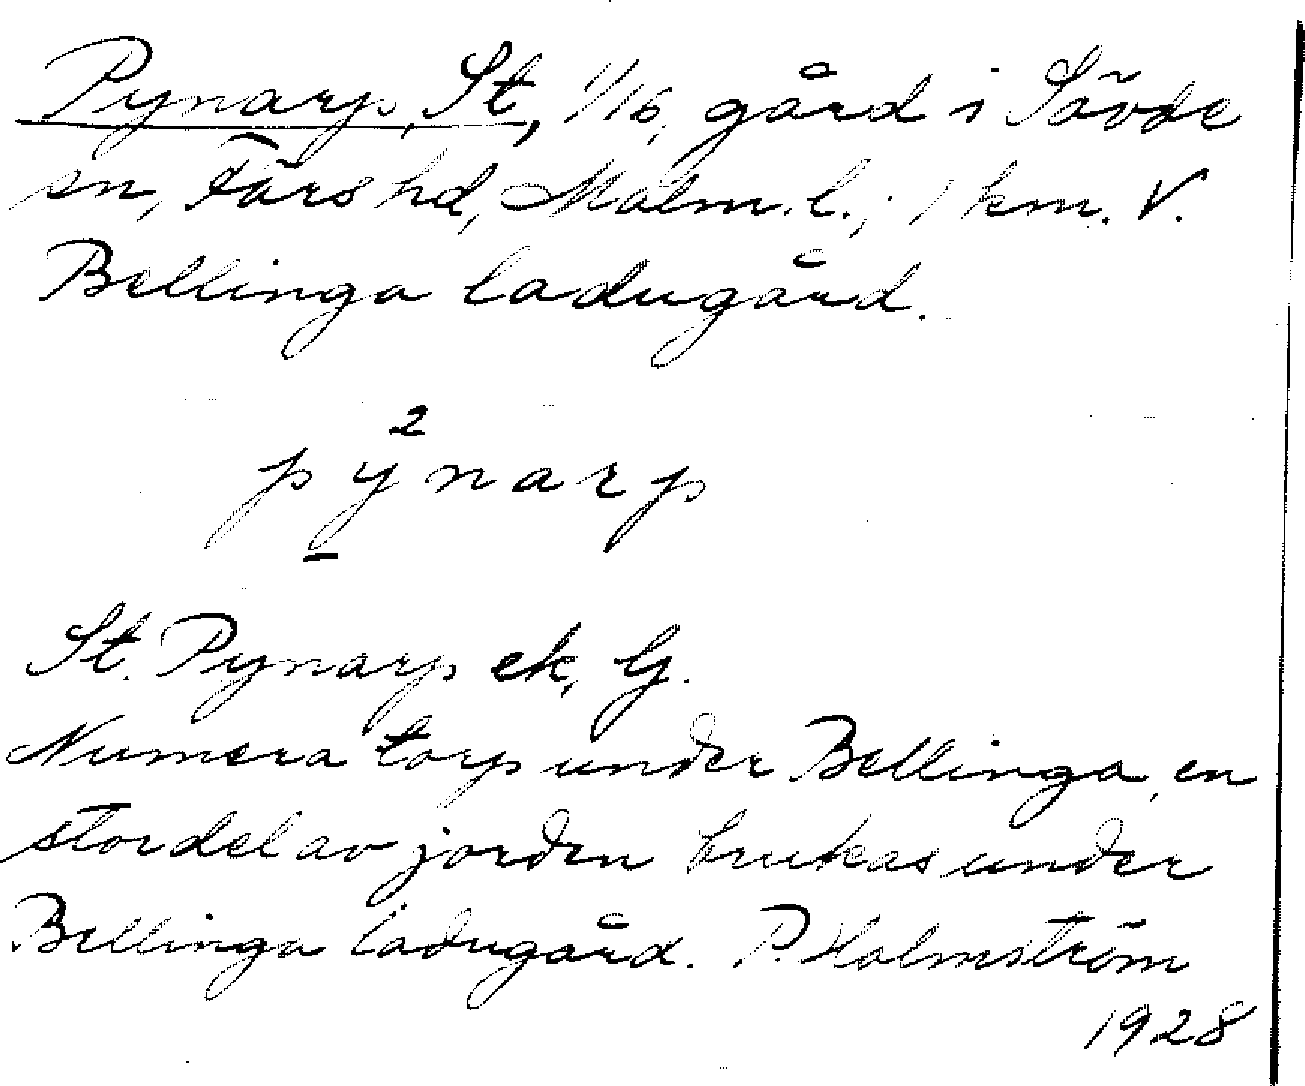 Pynarp, St, 1/16, gård i Sövde
sn, Färs hd, Malm. l.; 1 km. V.
Bellinga ladugård.
2
pynarp
St. Pynarp ek, G.
Numera torp under Bellinga, en
stor del av jorden brukas under
Bellinga ladugård. P. Holmström
1928